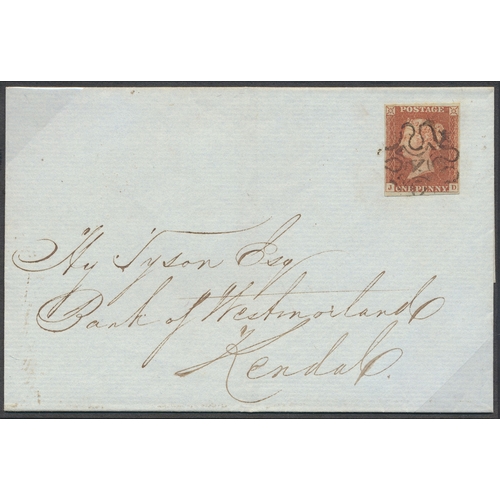 POSTAGE
J D
ONE PENNY
Hy Tyson Esq
Bank of Westmorland
Kendal.